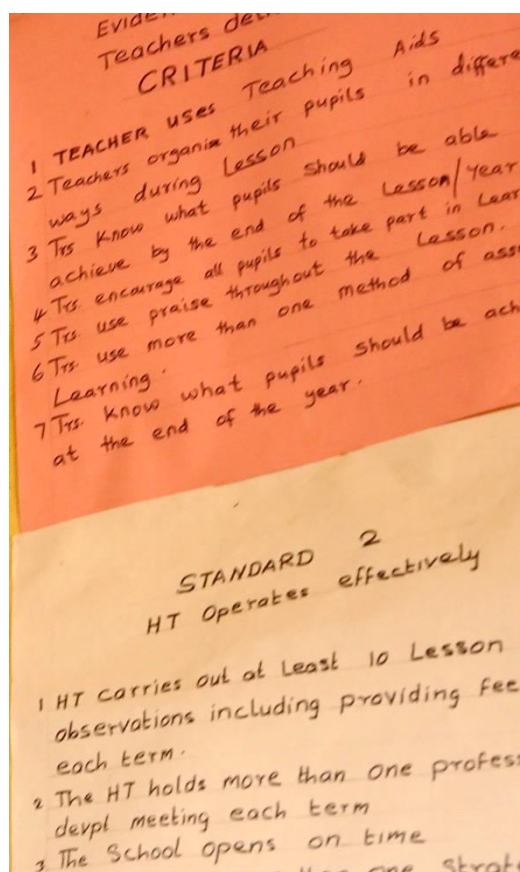 Teachers
CRITERIA
1 TEACHER uses Teaching Aids
2 Teachers organise their pupils in
ways during Lesson
3 Trs Know what pupils should be able
achieve by the end of the Lesson/year
4 Trs. encourage all pupils to take part in
5 Trs. use praise throughout the Lesson.
6 Trs. use more than one method of
Learning.
7 Trs. Know what pupils should be
at the end of the year.
STANDARD 2
HT Operates effectively
1 HT carries out at Least 10 Lesson
observations including providing
each term.
2 The HT holds more than one
devpl meeting each term
3 The School opens on time
one